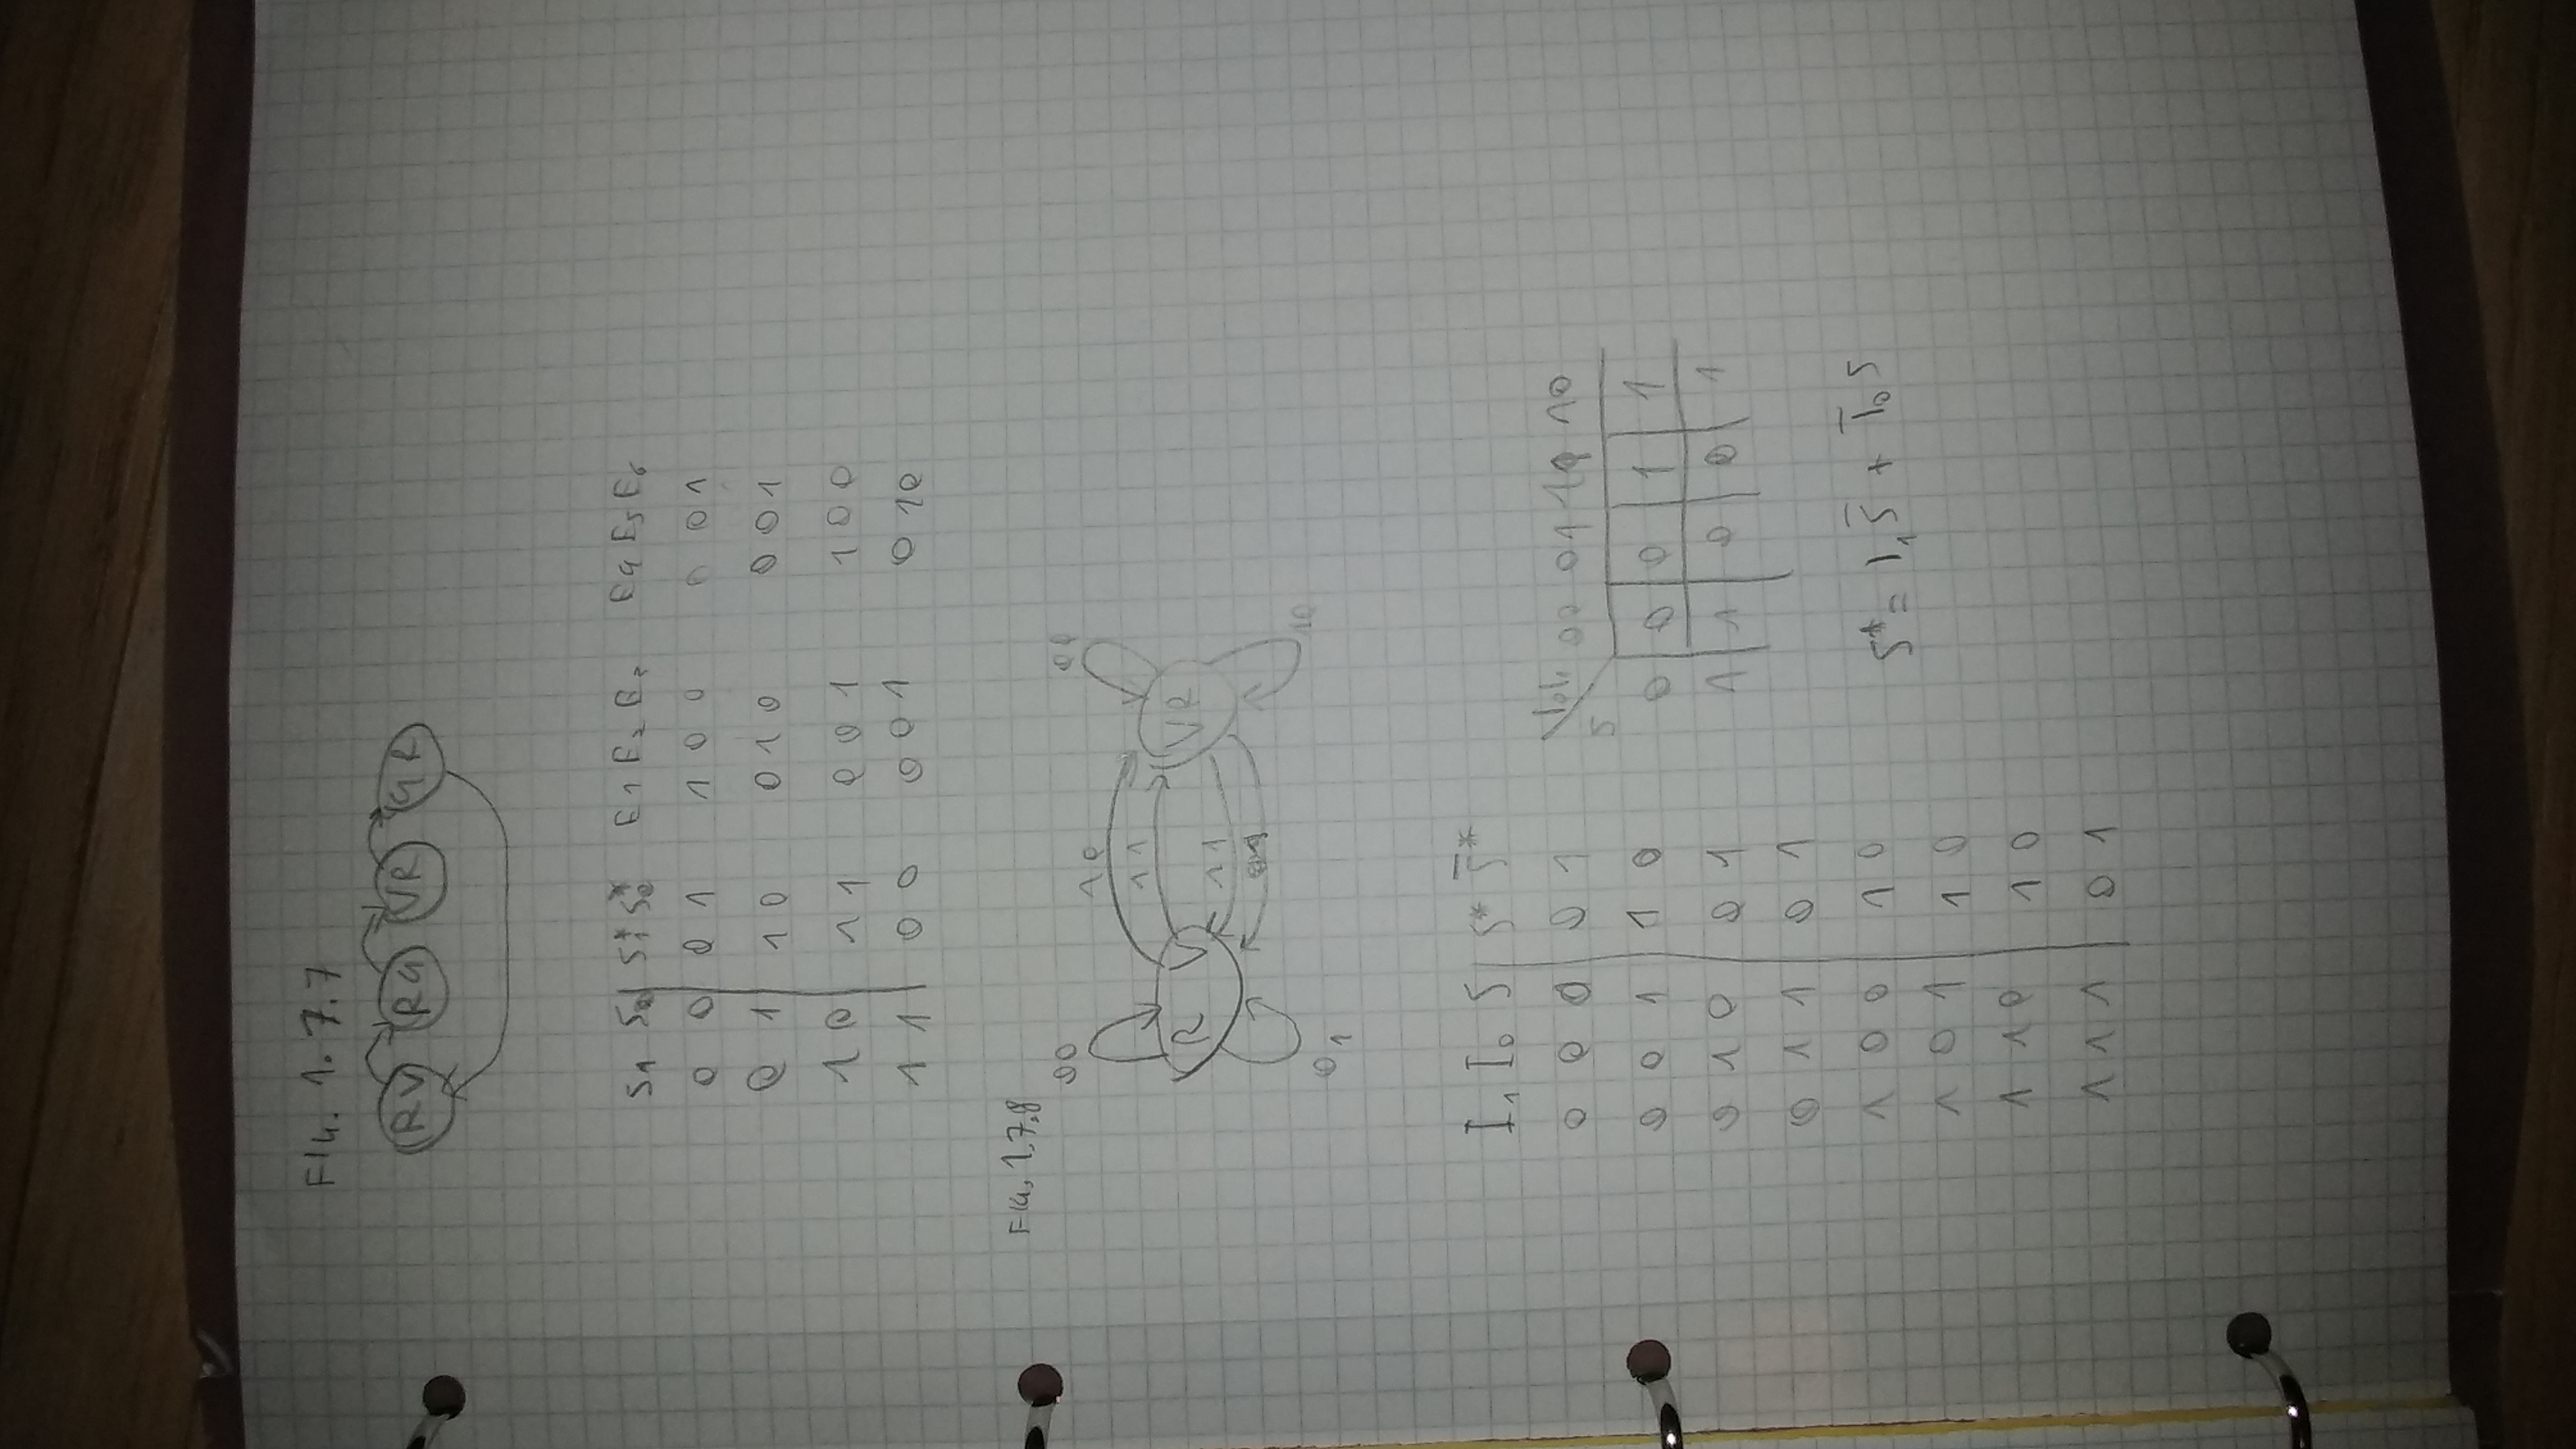 FIG. 1.7.7
RV RG VR GR
S1 S0 S1* S0* E1 E2 E3 E4 E5 E6
0 0 0 1 1 0 0 0 0 1
0 1 1 0 0 1 0 0 0 1
1 0 1 1 0 0 1 1 0 0
1 1 0 0 0 0 1 0 1 0
FIG. 1.7.8
00
10
11
R V VR
11
10
01
I1 I0 S S* S̅*
0 0 0 0 1
0 0 1 1 0
0 1 0 0 1
0 1 1 0 1
1 0 0 1 0
1 0 1 1 0
1 1 0 1 0
1 1 1 0 1
S 00 01 11 10
0 0 0 1 1
1 1 0 0 1
S* = I1 S̅ + I̅0 S